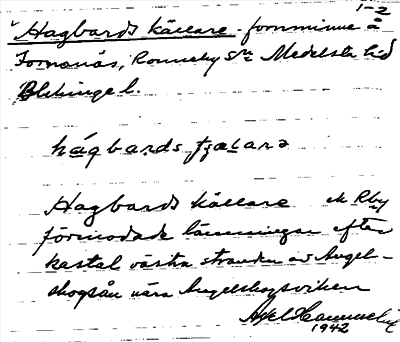 1-2
"Hagbards källare fornminne å
Tornanäs, Ronneby sn Medelsta hd
Blekinge l.
hágbards tjælara
Hagbards källare ek Rby
förmodade lämningar efter
kastal västra stranden av Angel-
skogsån nära Angelskogsviken
Axel
1942